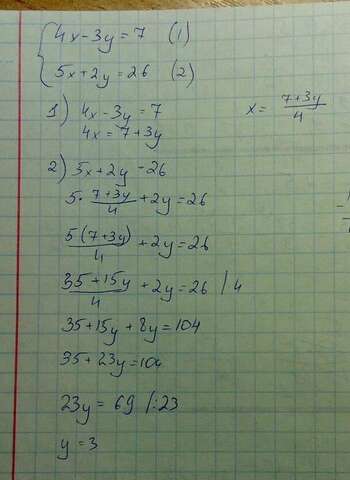 4x - 3y = 7 (1)
5x + 2y = 26 (2)
1) 4x - 3y = 7
4x = 7 + 3y
x = (7 + 3y)/4
2) 5x + 2y - 26
5 · (7 + 3y)/4 + 2y = 26
5(7 + 3y)/4 + 2y = 26
(35 + 15y)/4 + 2y = 26 / 4
35 + 15y + 8y = 104
35 + 23y = 104
23y = 69 /:23
y = 3